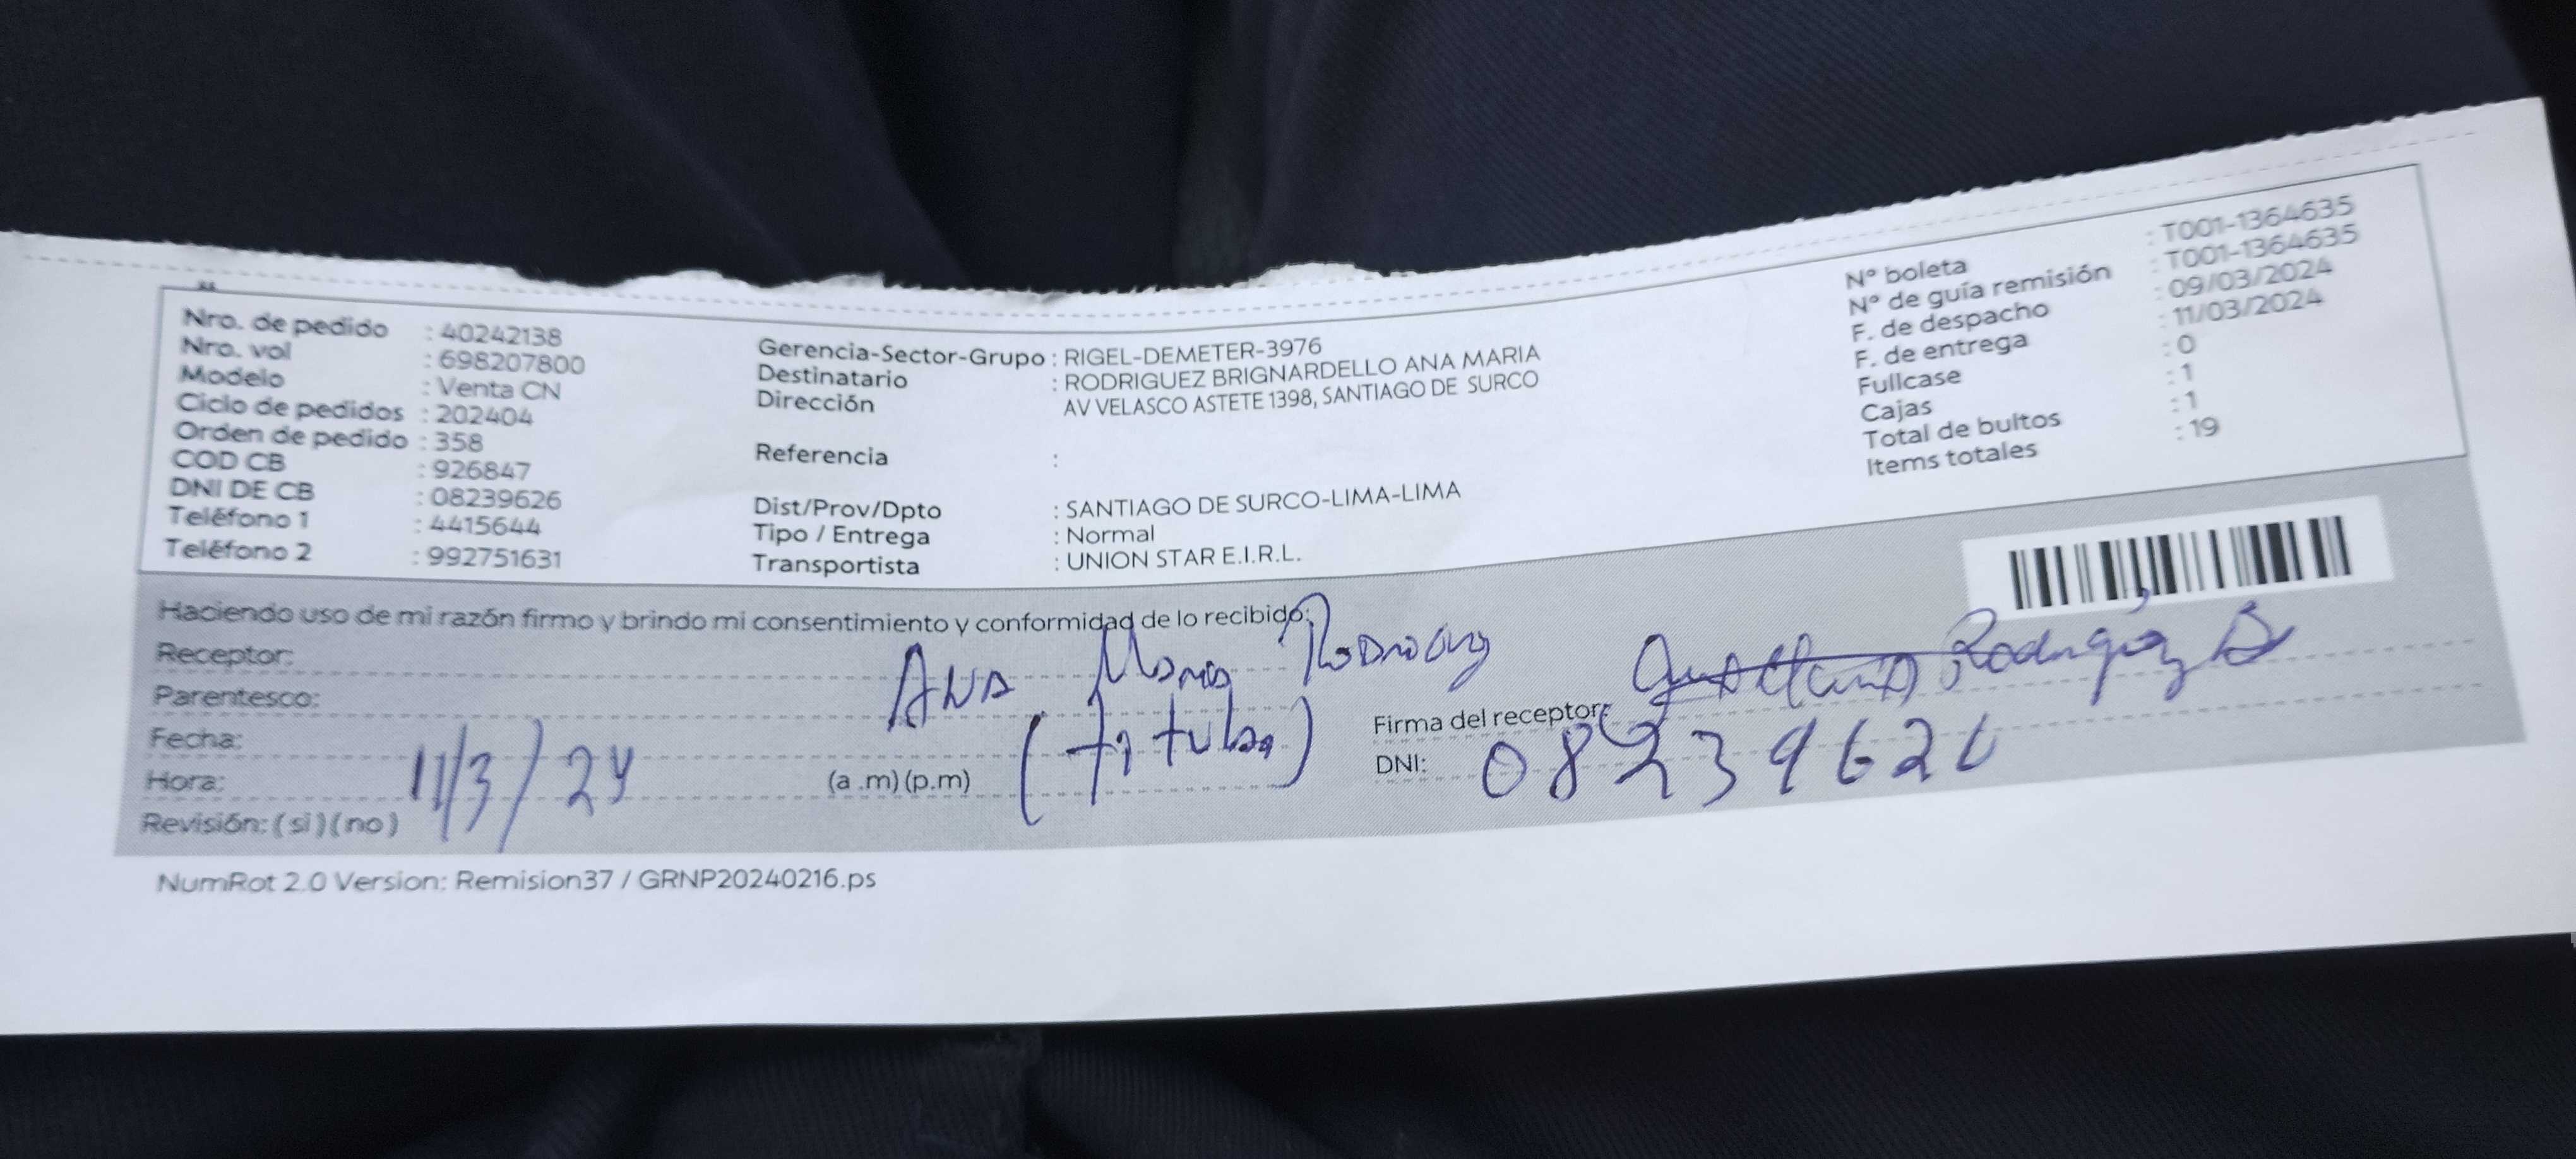 Nro. de pedido : 40242138
Nro. vol : 698207800
Modelo : Venta CN
Ciclo de pedidos : 202404
Orden de pedido : 358
COD CB : 926847
DNI DE CB : 08239626
Teléfono 1 : 4415644
Teléfono 2 : 992751631
Gerencia-Sector-Grupo : RIGEL-DEMETER-3976
Destinatario : RODRIGUEZ BRIGNARDELLO ANA MARIA
Dirección AV VELASCO ASTETE 1398, SANTIAGO DE SURCO
Referencia :
Dist/Prov/Dpto : SANTIAGO DE SURCO-LIMA-LIMA
Tipo / Entrega : Normal
Transportista : UNION STAR E.I.R.L.
N° boleta : T001-1364635
N° de guía remisión : T001-1364635
F. de despacho : 09/03/2024
F. de entrega : 11/03/2024
Fullcase : 0
Cajas : 1
Total de bultos : 1
Items totales : 19
Haciendo uso de mi razón firmo y brindo mi consentimiento y conformidad de lo recibido:
Receptor: Ana Maria
Parentesco: (titular)
Firma del receptor: Rodriguez B
Fecha: 11/3/24
DNI: 08239626
Hora: (a .m) (p.m)
Revisión: ( si ) ( no )
NumRot 2.0 Version: Remision37 / GRNP20240216.ps